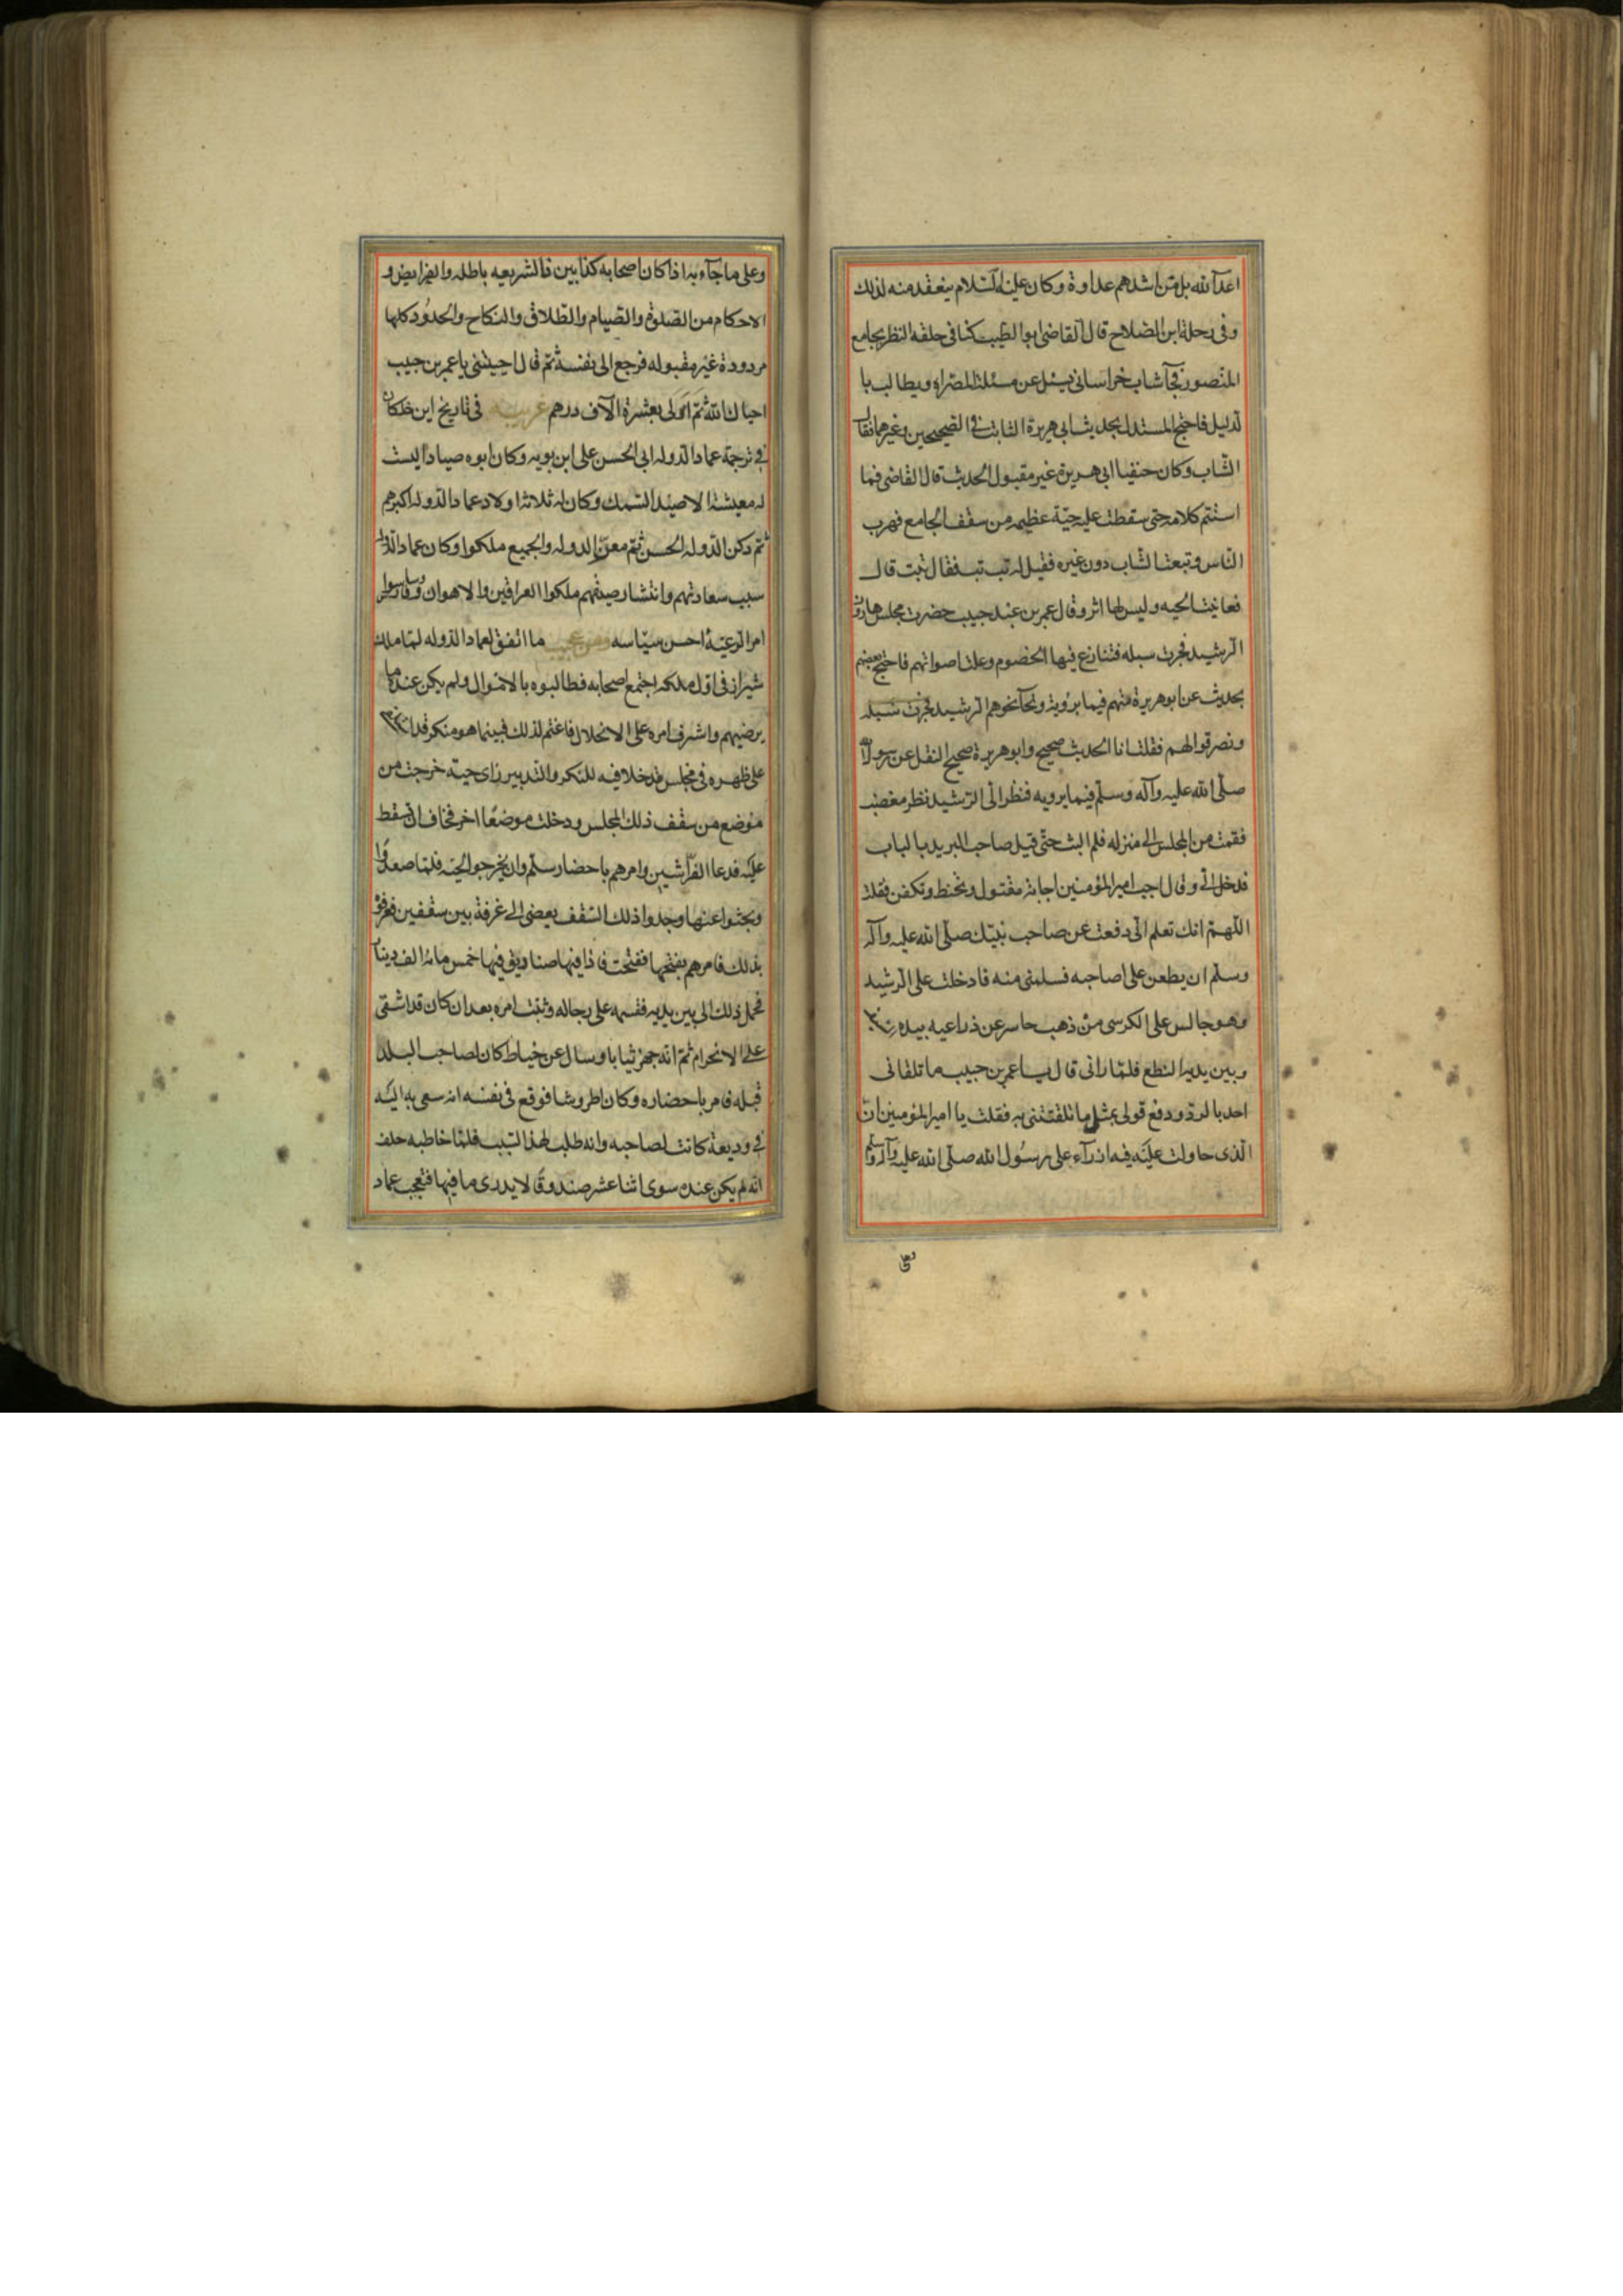 اعدآ الله بل من اشدهم عداوة وكان عليه السلام يتعقد منه لذلك
وفى رحلة ابن الصلاح قال القاضى ابو الطيب كنا فى حلقة النظر بجامع
المنصور فجآ شاب خراسانى يسئل عن مسئلة المصراه ويطالب با
لدليل فاحتج المستدل بحديث ابى هريرة الثابت فى الصحيحين وغيرهما فقال
الشاب وكان حنفيا ابى هريرة غير مقبول الحديث قال القاضى فما
استتم كلامه حتى سقطت عليه حيّة عظيمه من سقف الجامع فهرب
الناس وتبعت الشاب دون غيره فقيل له تب تب فقال تبت قال
فغابت الحيه وليس لها اثر وقال عمر بن عبد حبيب حضرت مجلس هارون
الرشيد فجرت سبله فتنازع فيها الخصوم وعلت اصواتهم فاحتج بعضهم
بحديث عن ابو هريرة متهم فيما يرويه ونحآ نحوهم الرشيد فجرت سبله
ونصر قوالهم فقلت انا الحديث صحيح وابو هريرة صحيح النقل عن رسول الله
صلى الله عليه وآله وسلم فيما يرويه فنظر الى الرشيد نظر مغضب
فقمت من المجلس الى منزله فلم البث حتى قيل صاحب البريد با لباب
فدخل الى وقال اجب امير المؤمنين اجابة مقتول وتحنط وتكفن فقلت
اللهم انك تعلم انى دفعت عن صاحب نبيك صلى الله عليه وآله
وسلم ان يطعن على اصاحبه فسلمنى منه فادخلت على الرشيد
وهو جالس على الكرسى من ذهب حاسر عن ذراعيه بيده
وبين يديه النطع فلما رانى قال يا عمر بن حبيب ما تلقانى
احد بالرد ودفع قولى بمثل ما تلقتنى به فقلت يا امير المؤمنين ان
الذى حاولت عليه فيه ازرآء على رسول الله صلى الله عليه وآله وسلم
وعلى ما جآء به اذا كان اصحابه كذابين فالشريعه باطله والفرايض و
الاحكام من الصلوة والصيام والطلاق والنكاح والحدود كلها
مردودة غير مقبوله فرجع الى نفسه ثم قال احييتنى يا عمر بن حبيب
احياك الله ثم امر لى بعشرة الآف درهم غريبه فى تاريخ ابن خلكان
فى ترجمة عماد الدوله ابى الحسن على ابن بويه وكان ابوه صيادا ليست
له معيشة الا صيد السمك وكان له ثلاثة اولاد عماد الدوله اكبرهم
ثم ركن الدوله الحسن ثم معز الدوله والجميع ملكوا وكان عماد الدوله
سبب سعادتهم وانتشار صيتهم ملكوا العراقين والاهوان وفارس وساسوا
امر الرعيّة احسن سيّاسه ومن عجيب ما اتفق لعماد الدوله لما ملك
شيراز فى اول ملكه اجتمع اصحابه فطالبوه بالاموال ولم يكن عنده ما
يرضيهم واشرف امره على الانحلال فاغتم لذلك فبينما هو متكر قد
على ظهره فى مجلس قد خلا فيه للتكر والتدبير راى حيّة خرجت من
موضع من سقف ذلك المجلس ودخلت موضعًا اخر فخاف ان تسقط
عليه فدعا الفراشين وامرهم باحضار سلم وان يخرجوا الحيّه فلما صعدوا
وبحثوا عنها وجدوا ذلك السقف يعضى الى غرفة بين سقفين فعرفوه
بذلك فامرهم بفتحها ففتحت فاذا فيها صناديق فيها خمس مائة الف دينار
فحمل ذلك الى بين يديه فقسمه على رجاله وثبت امره بعد ان كان قد اشفى
على الانحرام ثم انه جهز ثيابا وسال عن خياط كان لصاحب البلد
قبله فامر باحضاره وكان اطروشا فوقع فى نفسه انه سعى به اليه
فى وديعة كانت لصاحبه وانه طلب لهذا السبب فلما خاطبه حلف
انه لم يكن عنده سوى اثنا عشر صندوقا لا يدرى ما فيها فتعجب عماد